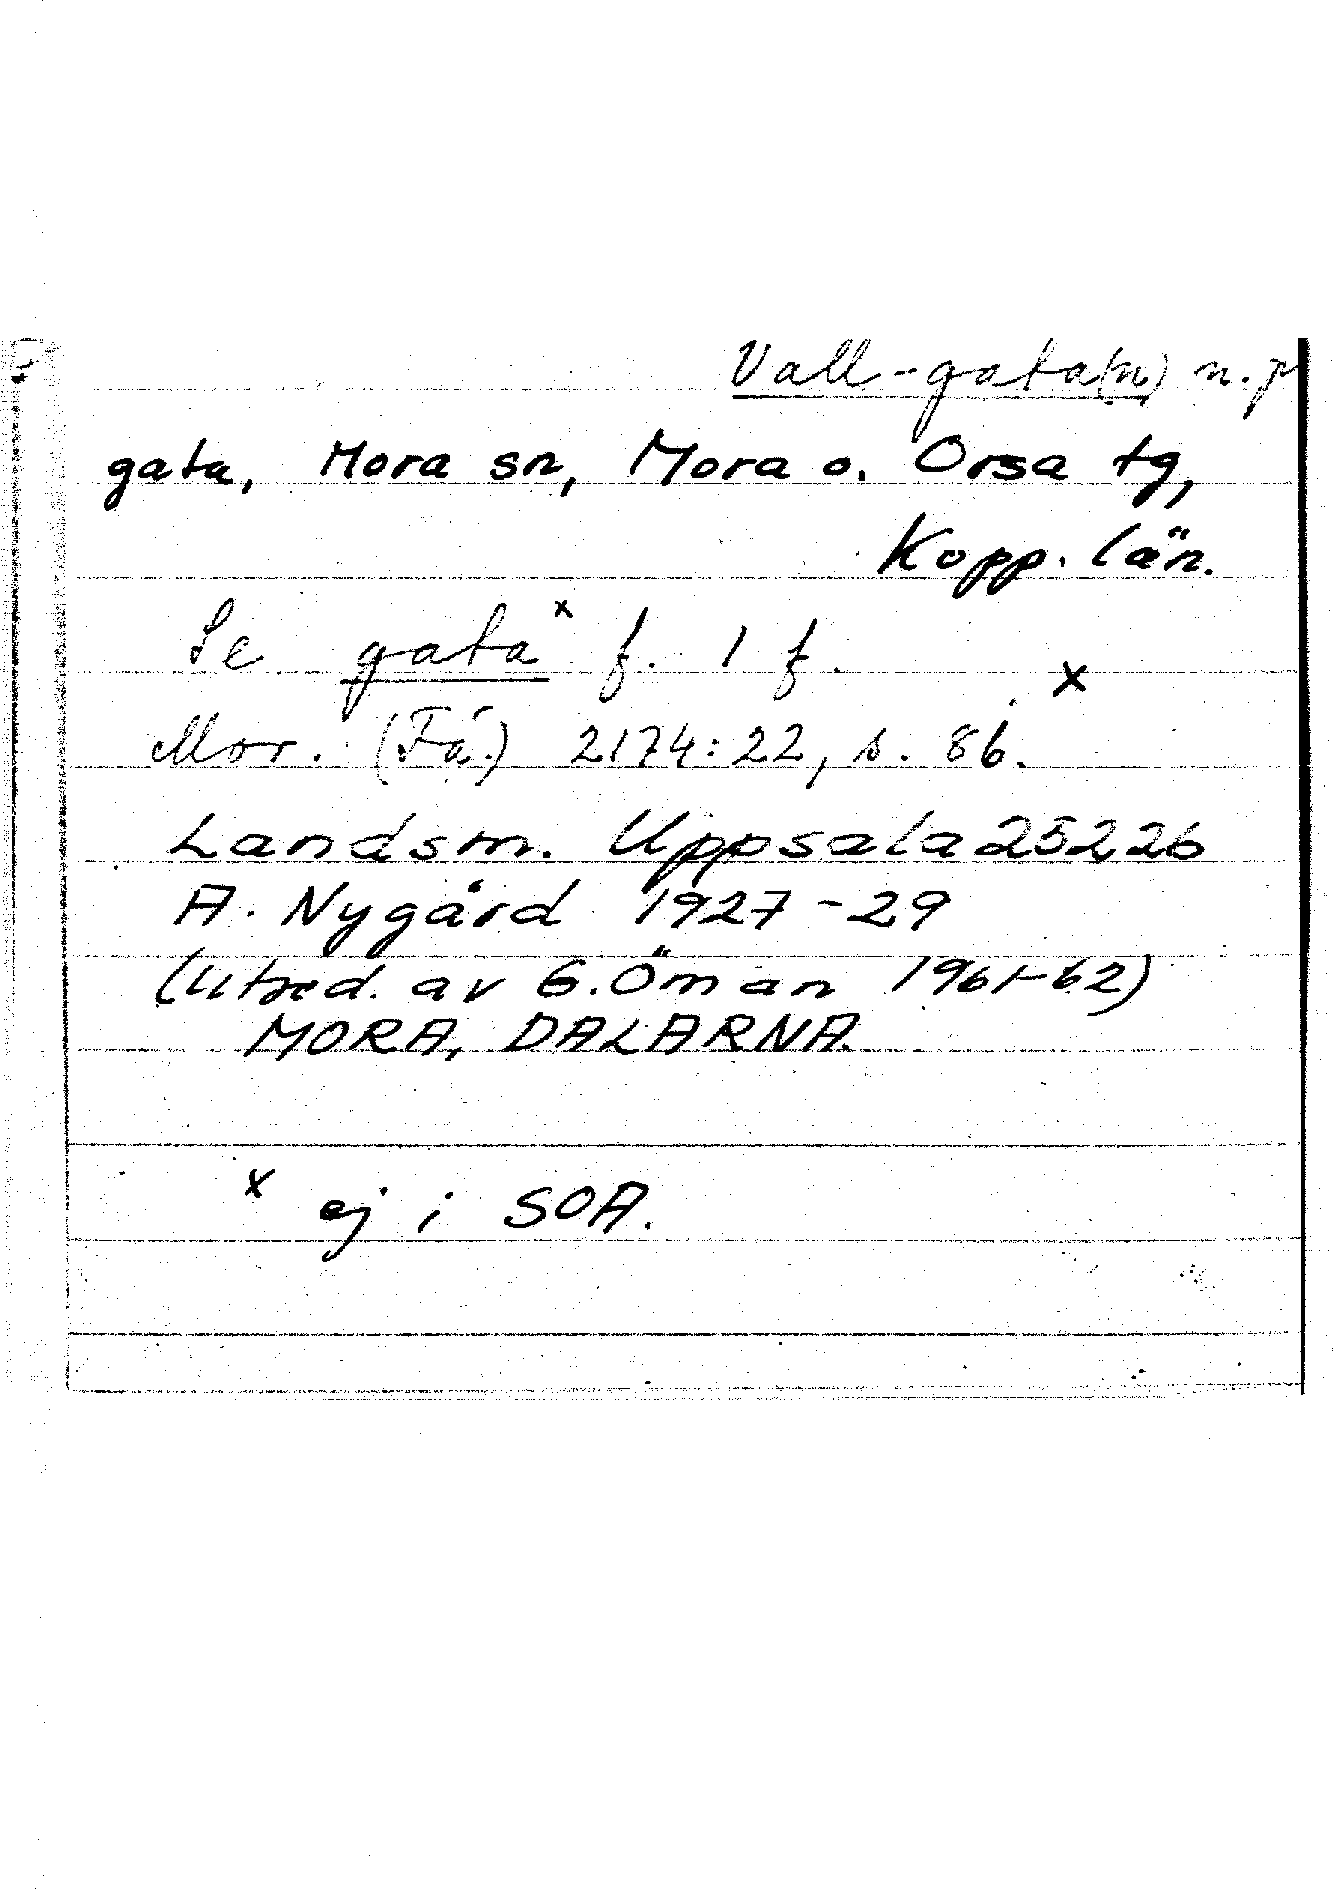 Vall-gata(n) n. pr
gata, Mora sn, Mora o. Orsa tg,
Kopp. län.
Se gata x f. 1 f.
x
Mor. (Få.) 2174:22, s. 86.
Landsm. Uppsala 25226
A. Nygård 1927-29
(utred. av G. Öman 1961-62)
MORA, DALARNA.
x ej i SOA.